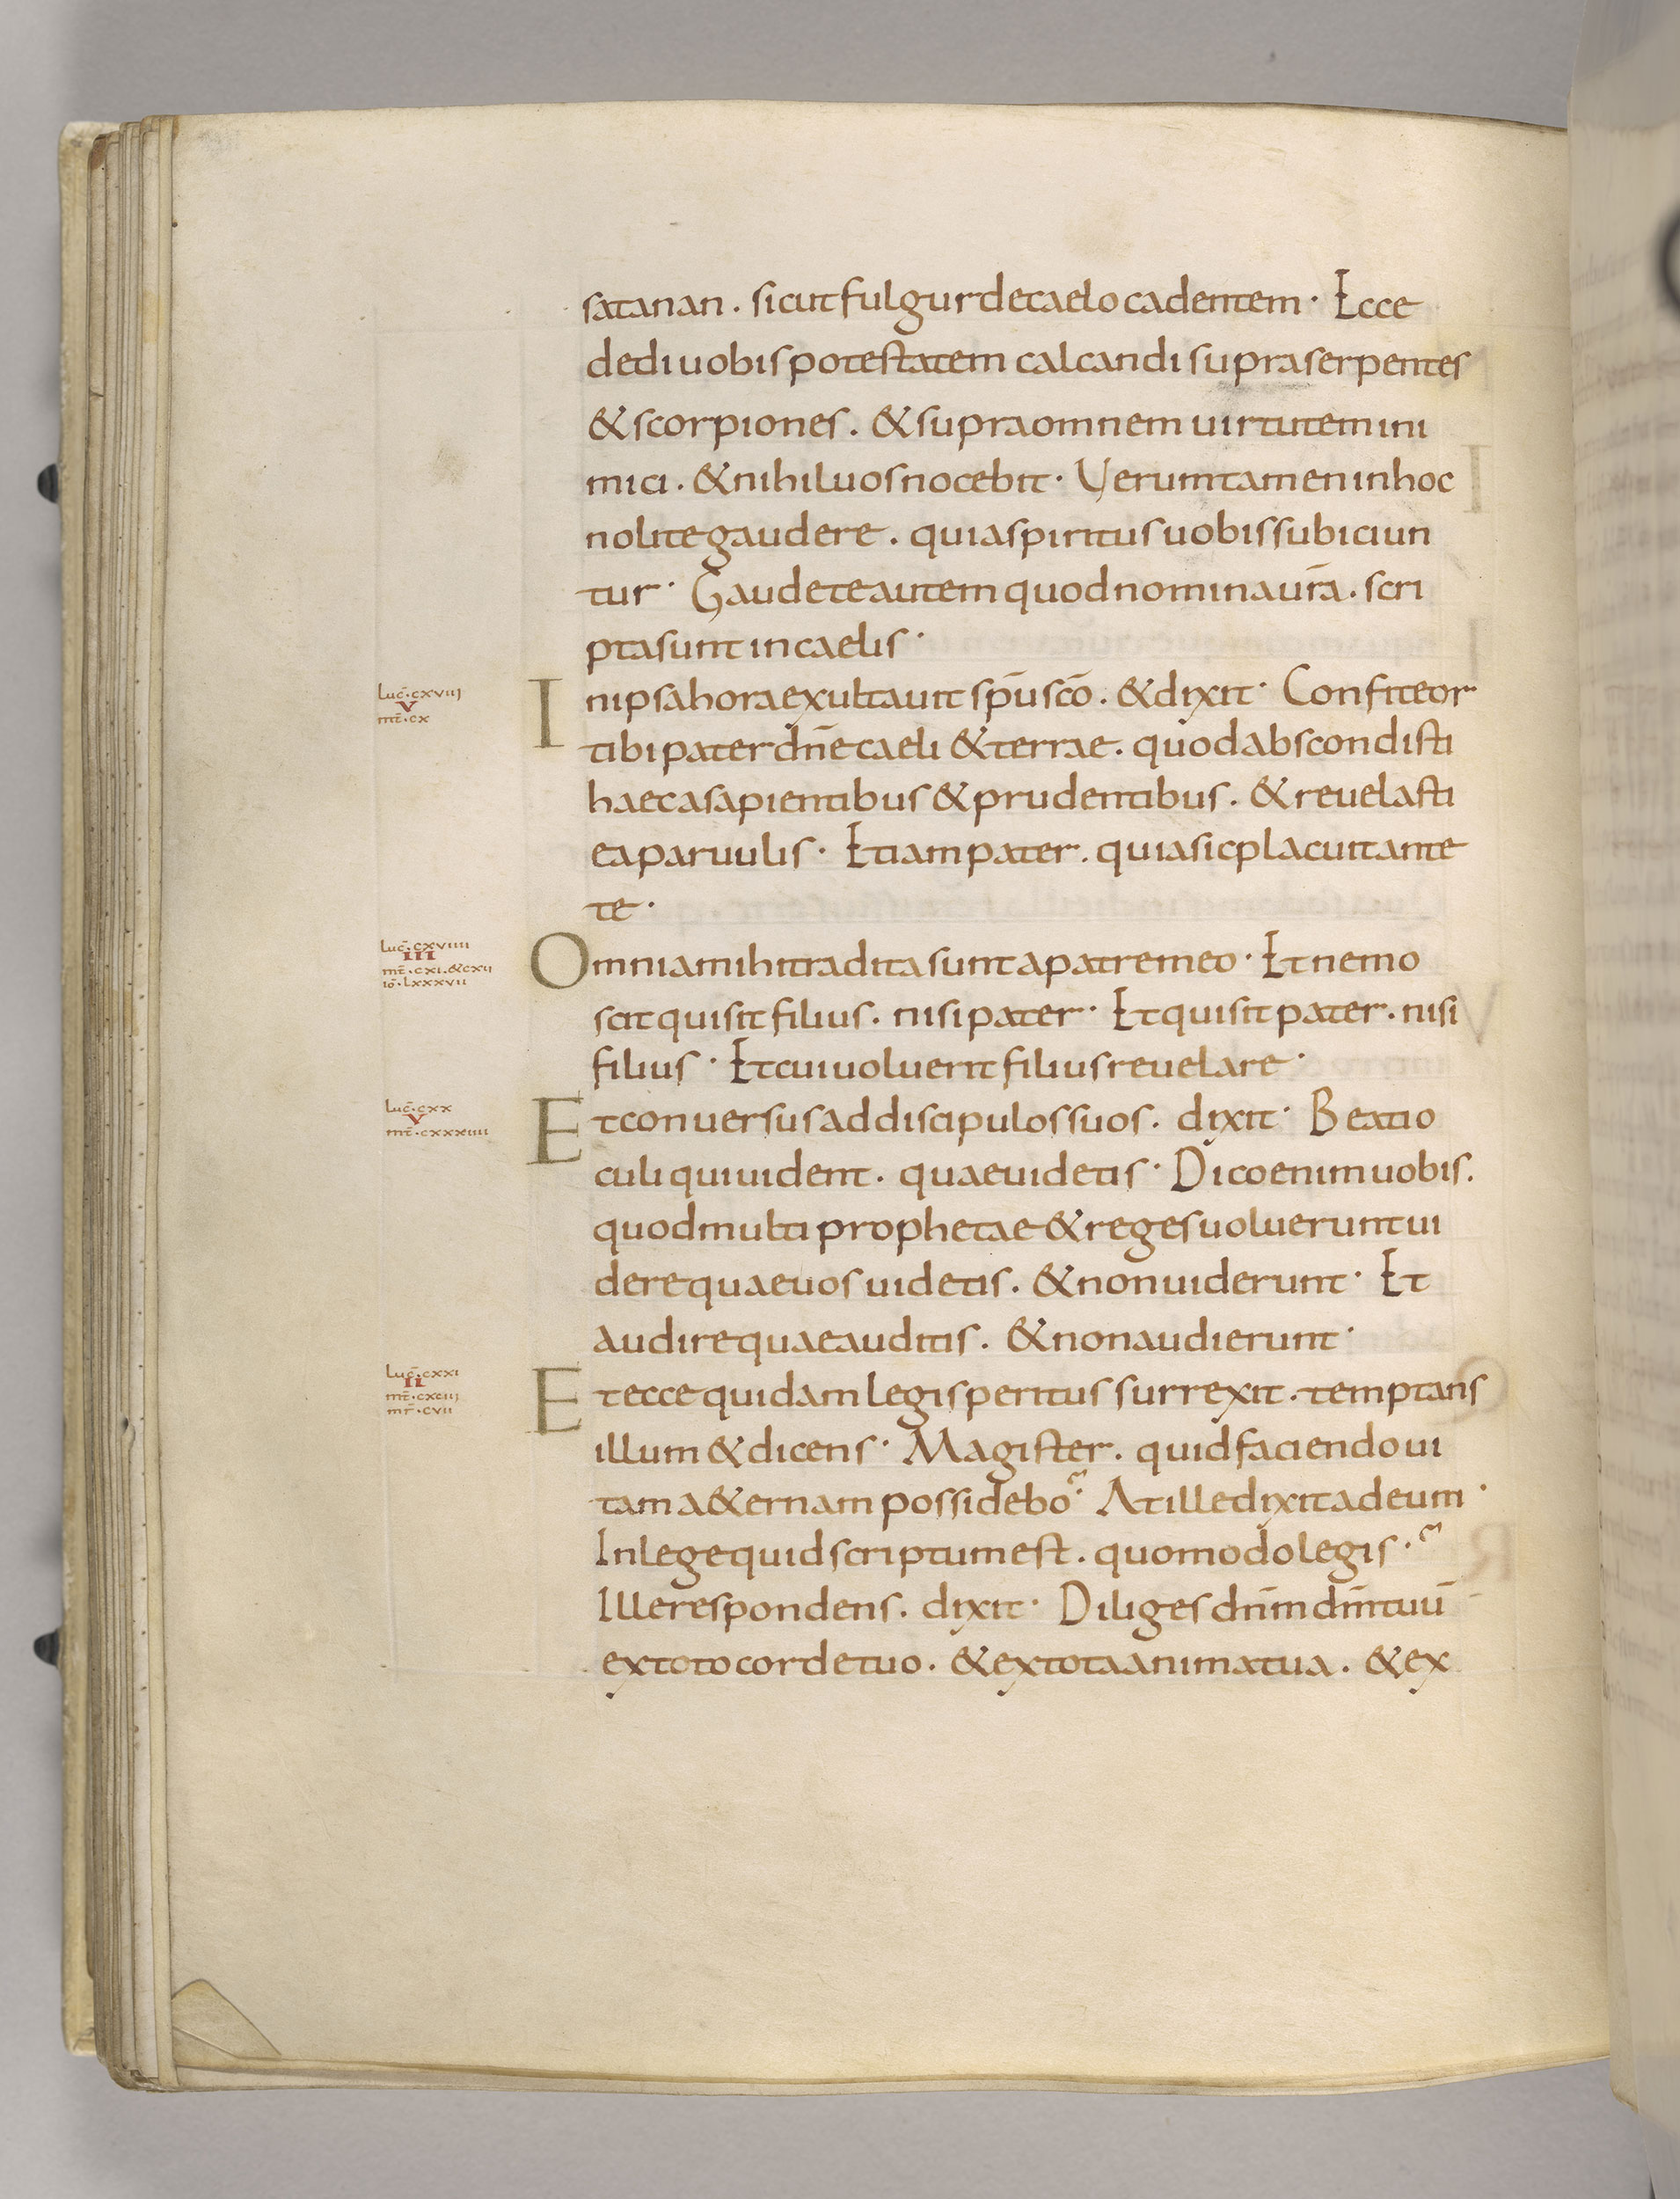 satanan . sicut fulgur de caelo cadentem · Ecce
dedi uobis potestatem calcandi supra serpentes
& scorpiones . & supra omnem uirtutem ini
mici . & nihil uos nocebit · Veruntamen in hoc
nolite gaudere . quia spiritus uobis subiciun
tur · Gaudete autem quod nomina ur̄a . scri
pta sunt in caelis ·
Luc̄ · cxviiii
V
mt̄ · cx
In ipsa hora exultauit sp̄u sc̄o . & dixit · Confiteor
tibi pater dn̄e caeli & terrae . quod abscondisti
haec a sapientibus & prudentibus . & reuelasti
ea paruulis · Etiam pater . quia sic placuit ante
te ·
Luc̄ · cxviiii
III
mt̄ · cxi . & cxii
io̅ · Lxxxvii
Omnia mihi tradita sunt a patre meo · Et nemo
scit qui sit filius . nisi pater · Et qui sit pater . nisi
filius · Et cui uoluerit filius reuelare ·
Luc̄ · cxx
V
mt̄ · cxxxiiii
Et conuersus ad discipulos suos . dixit · Beati o
culi qui uident . quae uidetis · Dico enim uobis .
quod multi prophetae & reges uoluerunt ui
dere quae uos uidetis . & non uiderunt · Et
audire quae auditis . & non audierunt ·
Luc̄ · cxxi
II
mt̄ · cxciii
mr̄ · cvii
Et ecce quidam legis peritus surrexit . temptans
illum & dicens · Magister . quid faciendo ui
tam a&ernam possidebo · At ille dixit ad eum ·
In lege quid scriptum est . quomodo legis ·
Ille respondens . dixit · Diliges dn̄m dm̄ tuū
ex toto corde tuo . & ex tota anima tua . & ex